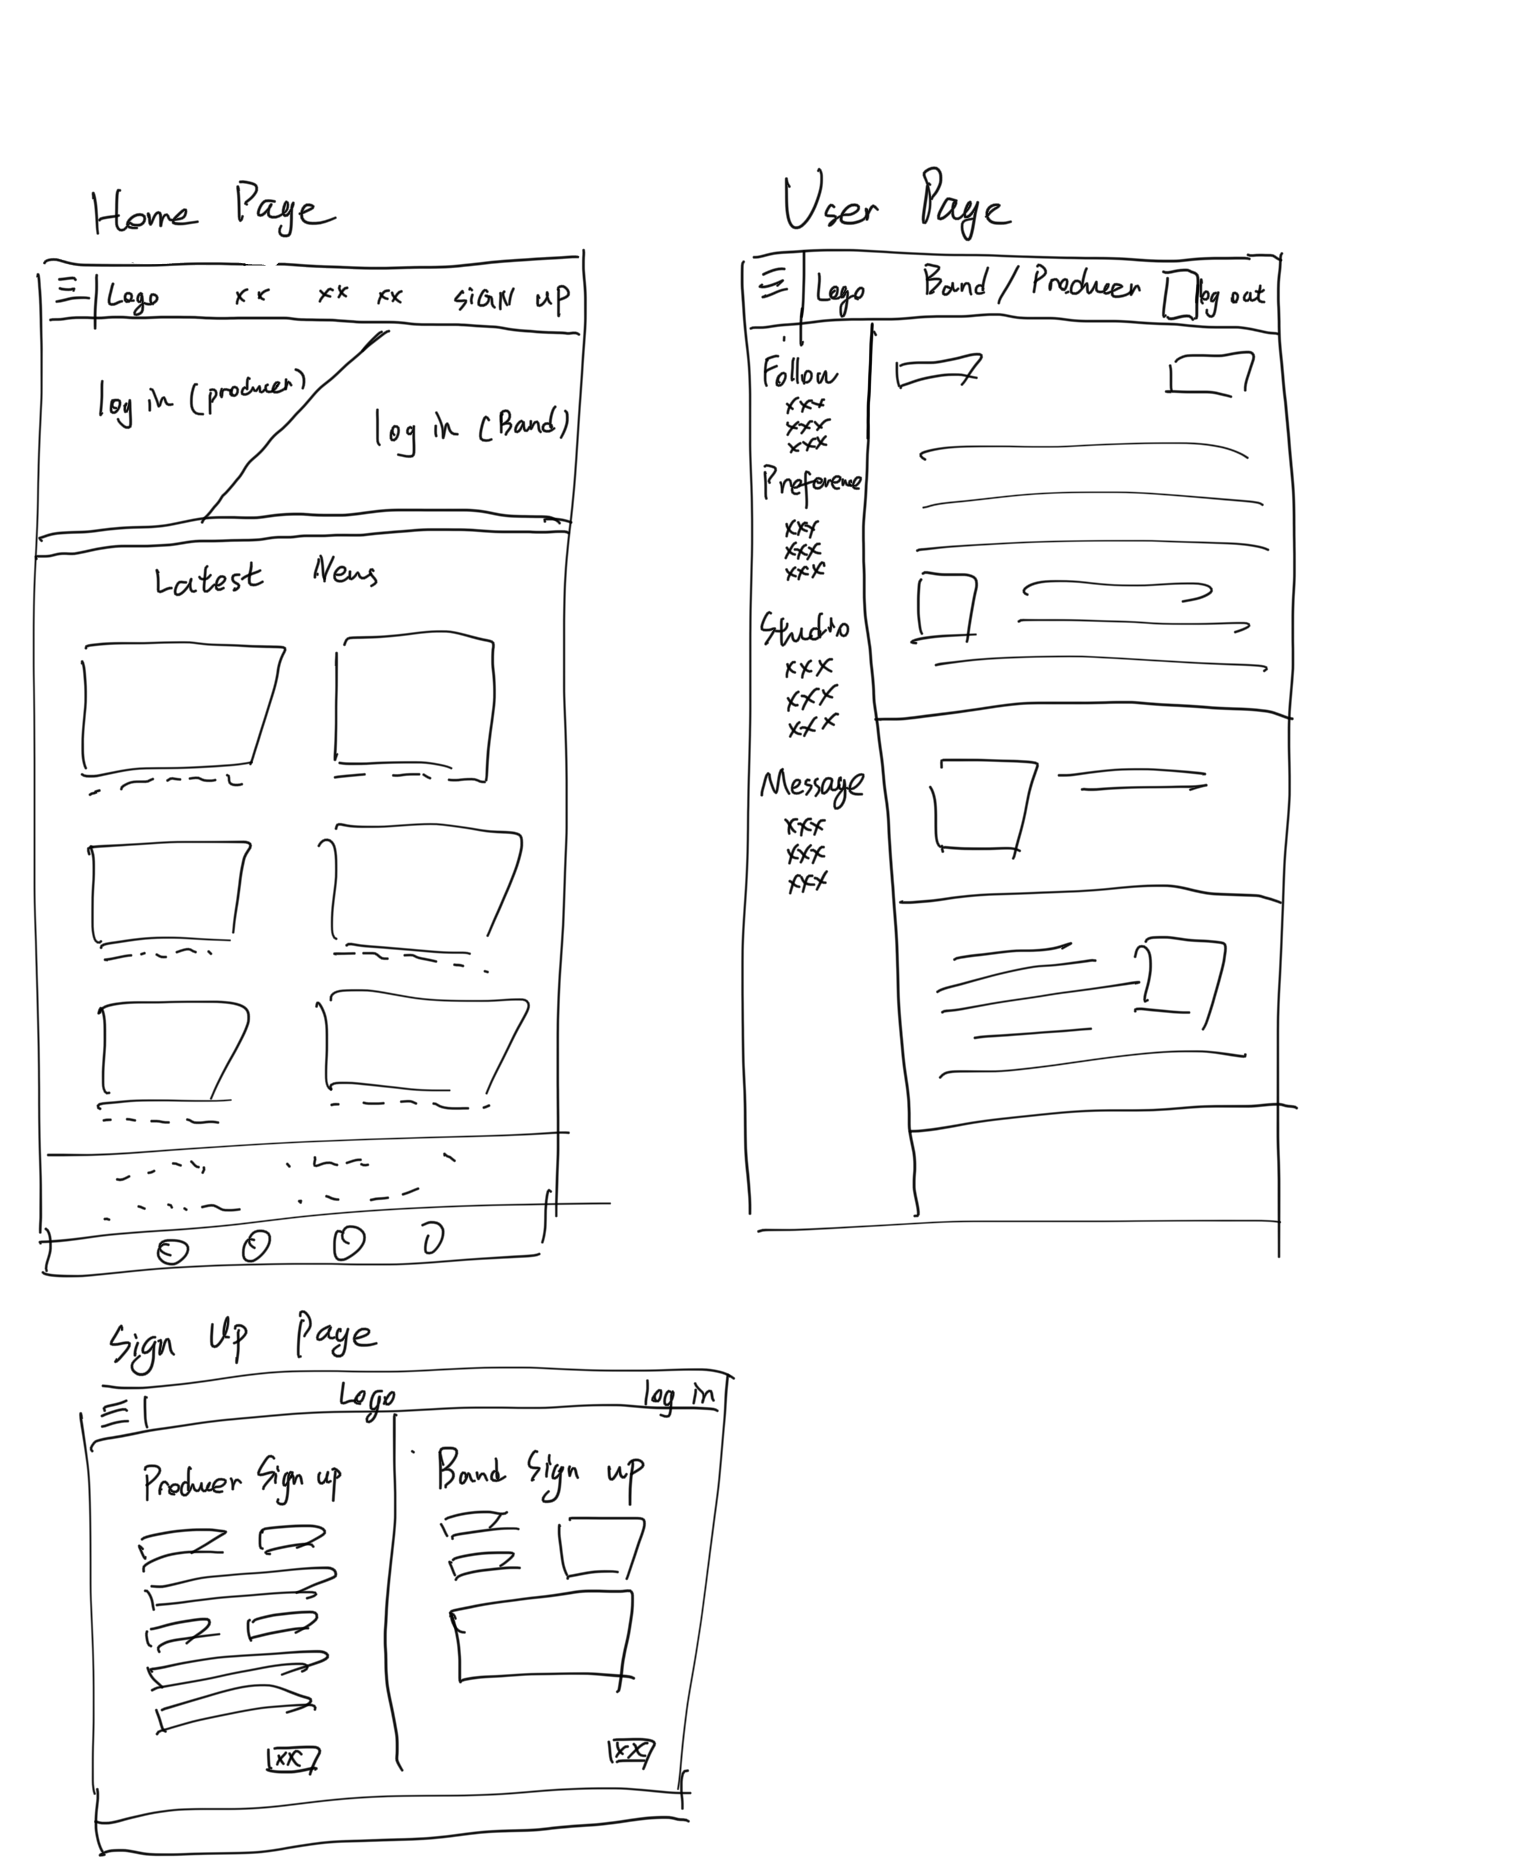 Home Page
Logo xx xx xx SIGN UP
log in (producer)
log in (Band)
Latest News
User Page
Logo Band / Producer log out
Follow
xxx
xxx
xxx
Preference
xxx
xxx
xxx
Studio
xxx
xxx
xxx
Message
xxx
xxx
xxx
Sign Up Page
Logo log in
Producer Sign up
xx
Band Sign up
xx